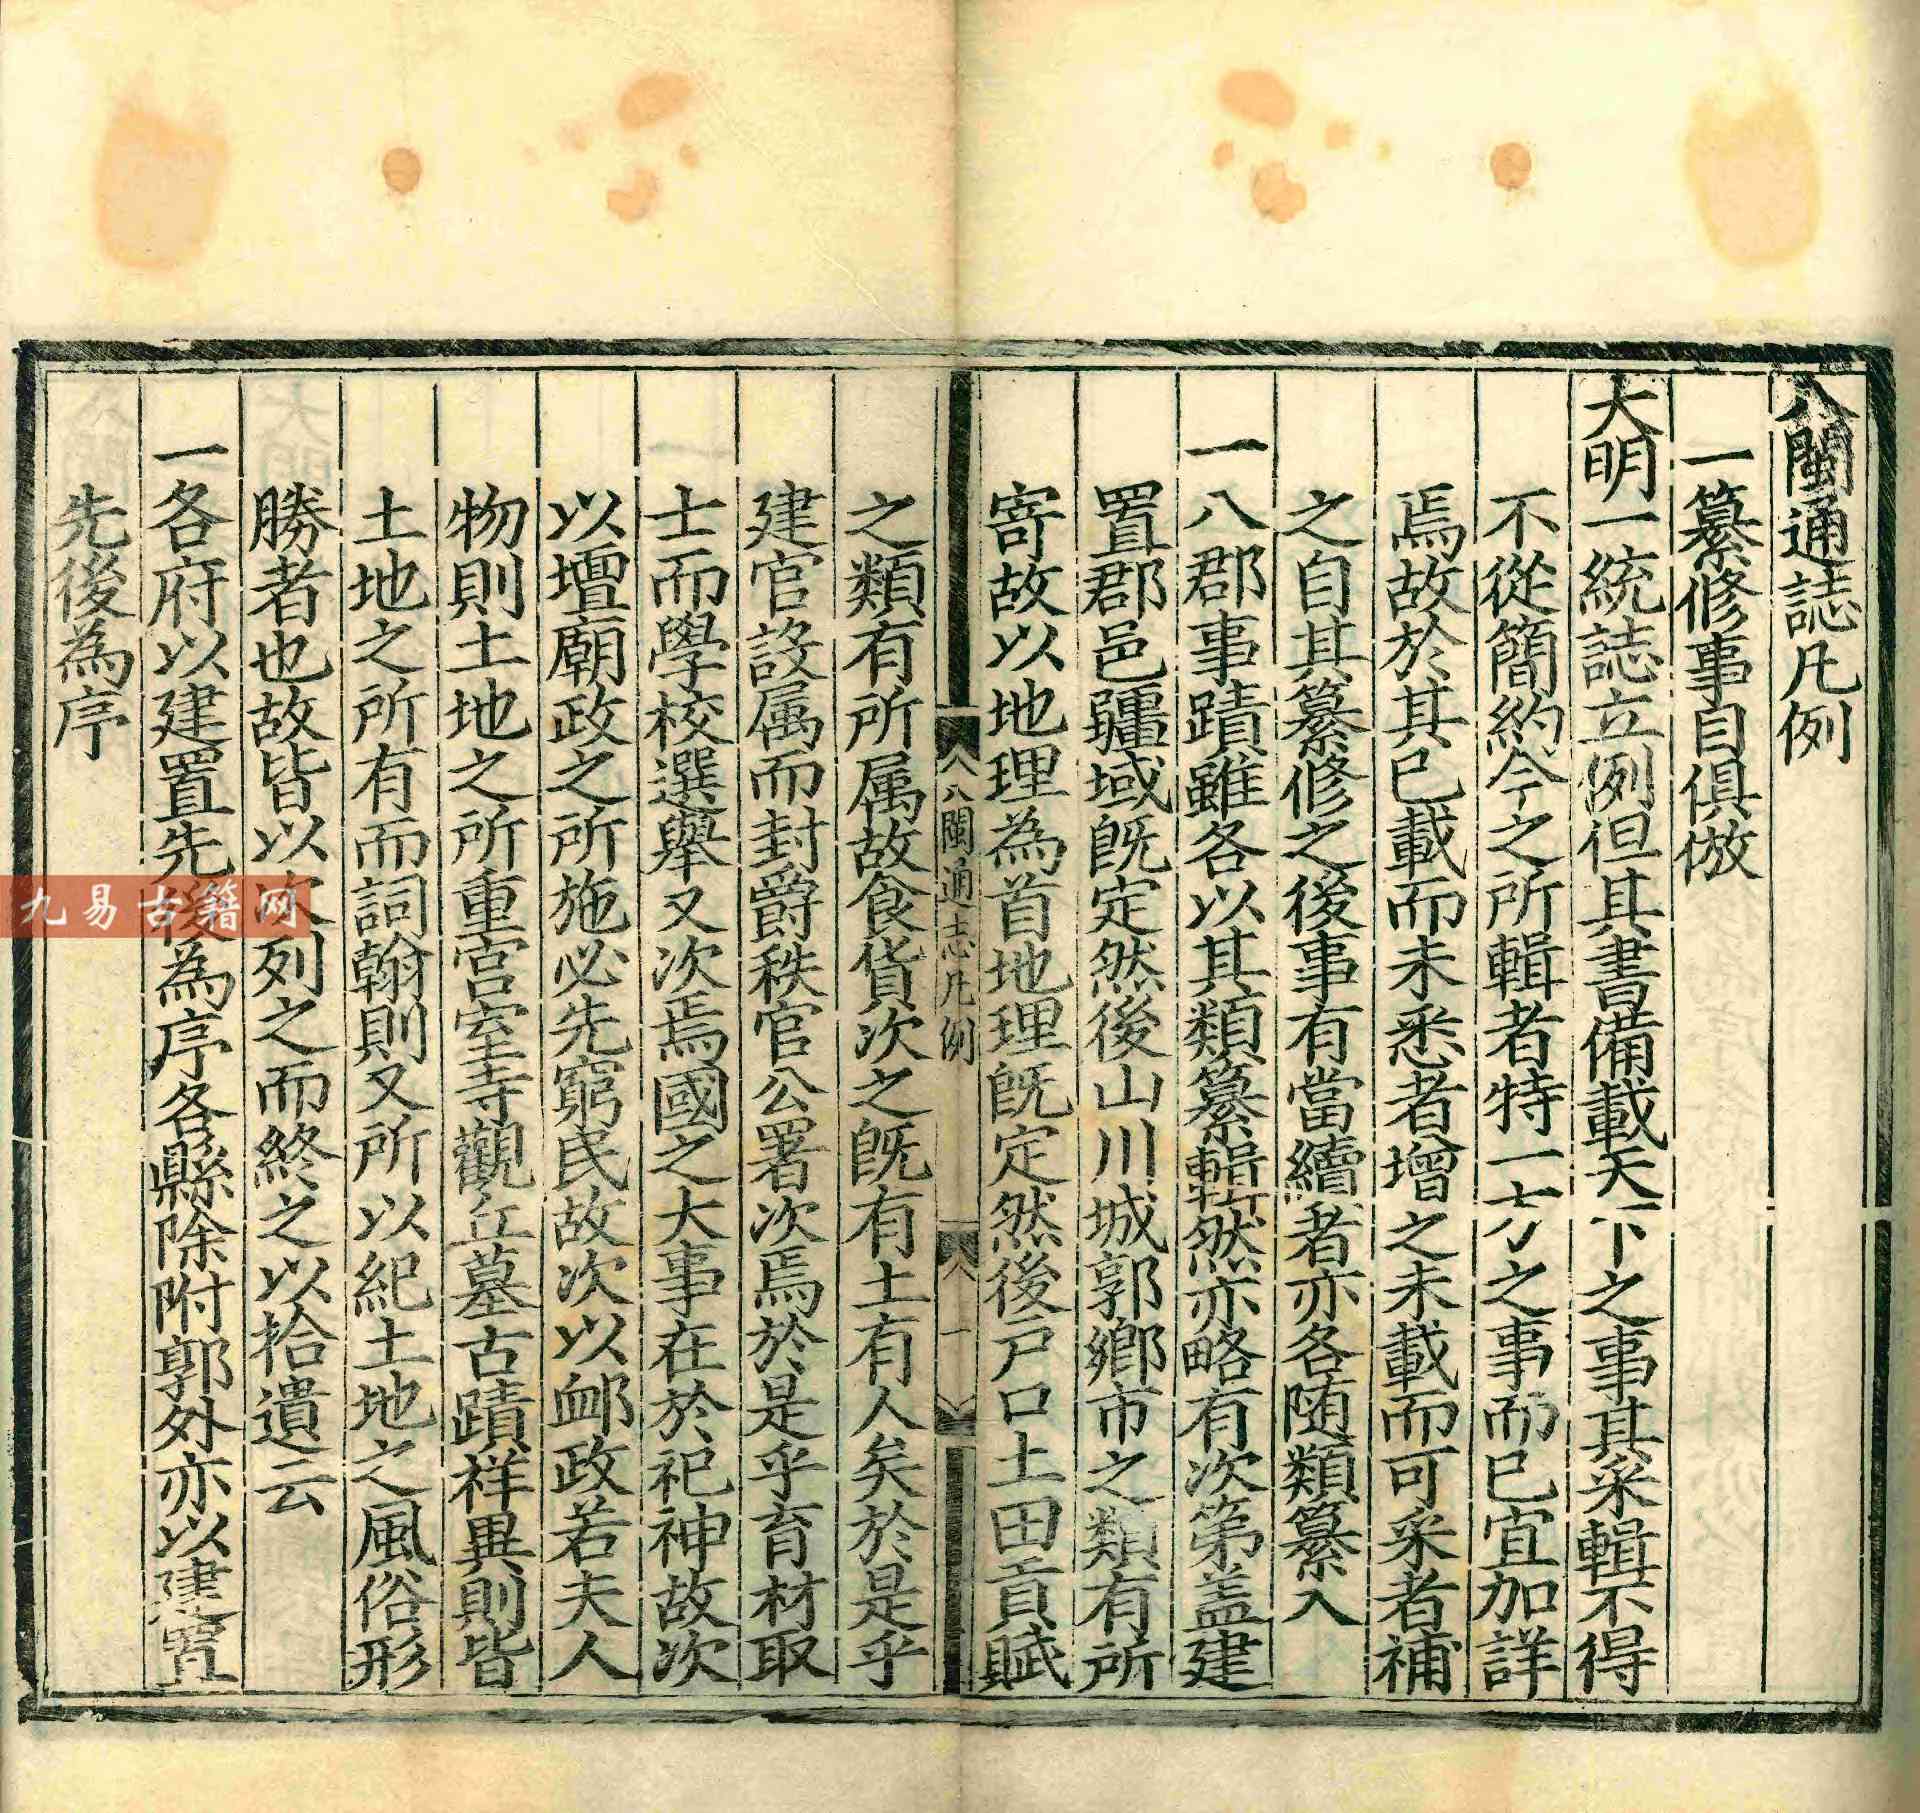 八閩通誌凡例
一纂修事目俱倣
大明一統誌立例但其書備載天下之事其采輯不得
不從簡約今之所輯者特一方之事而已宜加詳
焉故於其已載而未悉者增之未載而可采者補
之自其纂修之後事有當續者亦各随類纂入
一八郡事蹟雖各以其類纂輯然亦略有次第盖建
置郡邑疆域旣定然後山川城郭鄉市之類有所
寄故以地理為首地理旣定然後戶口土田貢賦
八閩通志凡例
一
之類有所属故食貨次之旣有土有人矣於是乎
建官設属而封爵秩官公署次焉於是乎育材取
士而學校選舉又次焉國之大事在於祀神故次
以壇廟政之所施必先窮民故次以卹政若夫人
物則土地之所重宫室寺觀丘墓古蹟祥異則皆
土地之所有而詞翰則又所以紀土地之風俗形
勝者也故皆以次列之而終之以拾遺云
一各府以建置先後為序各縣除附郭外亦以建置
先後為序
九易古籍网